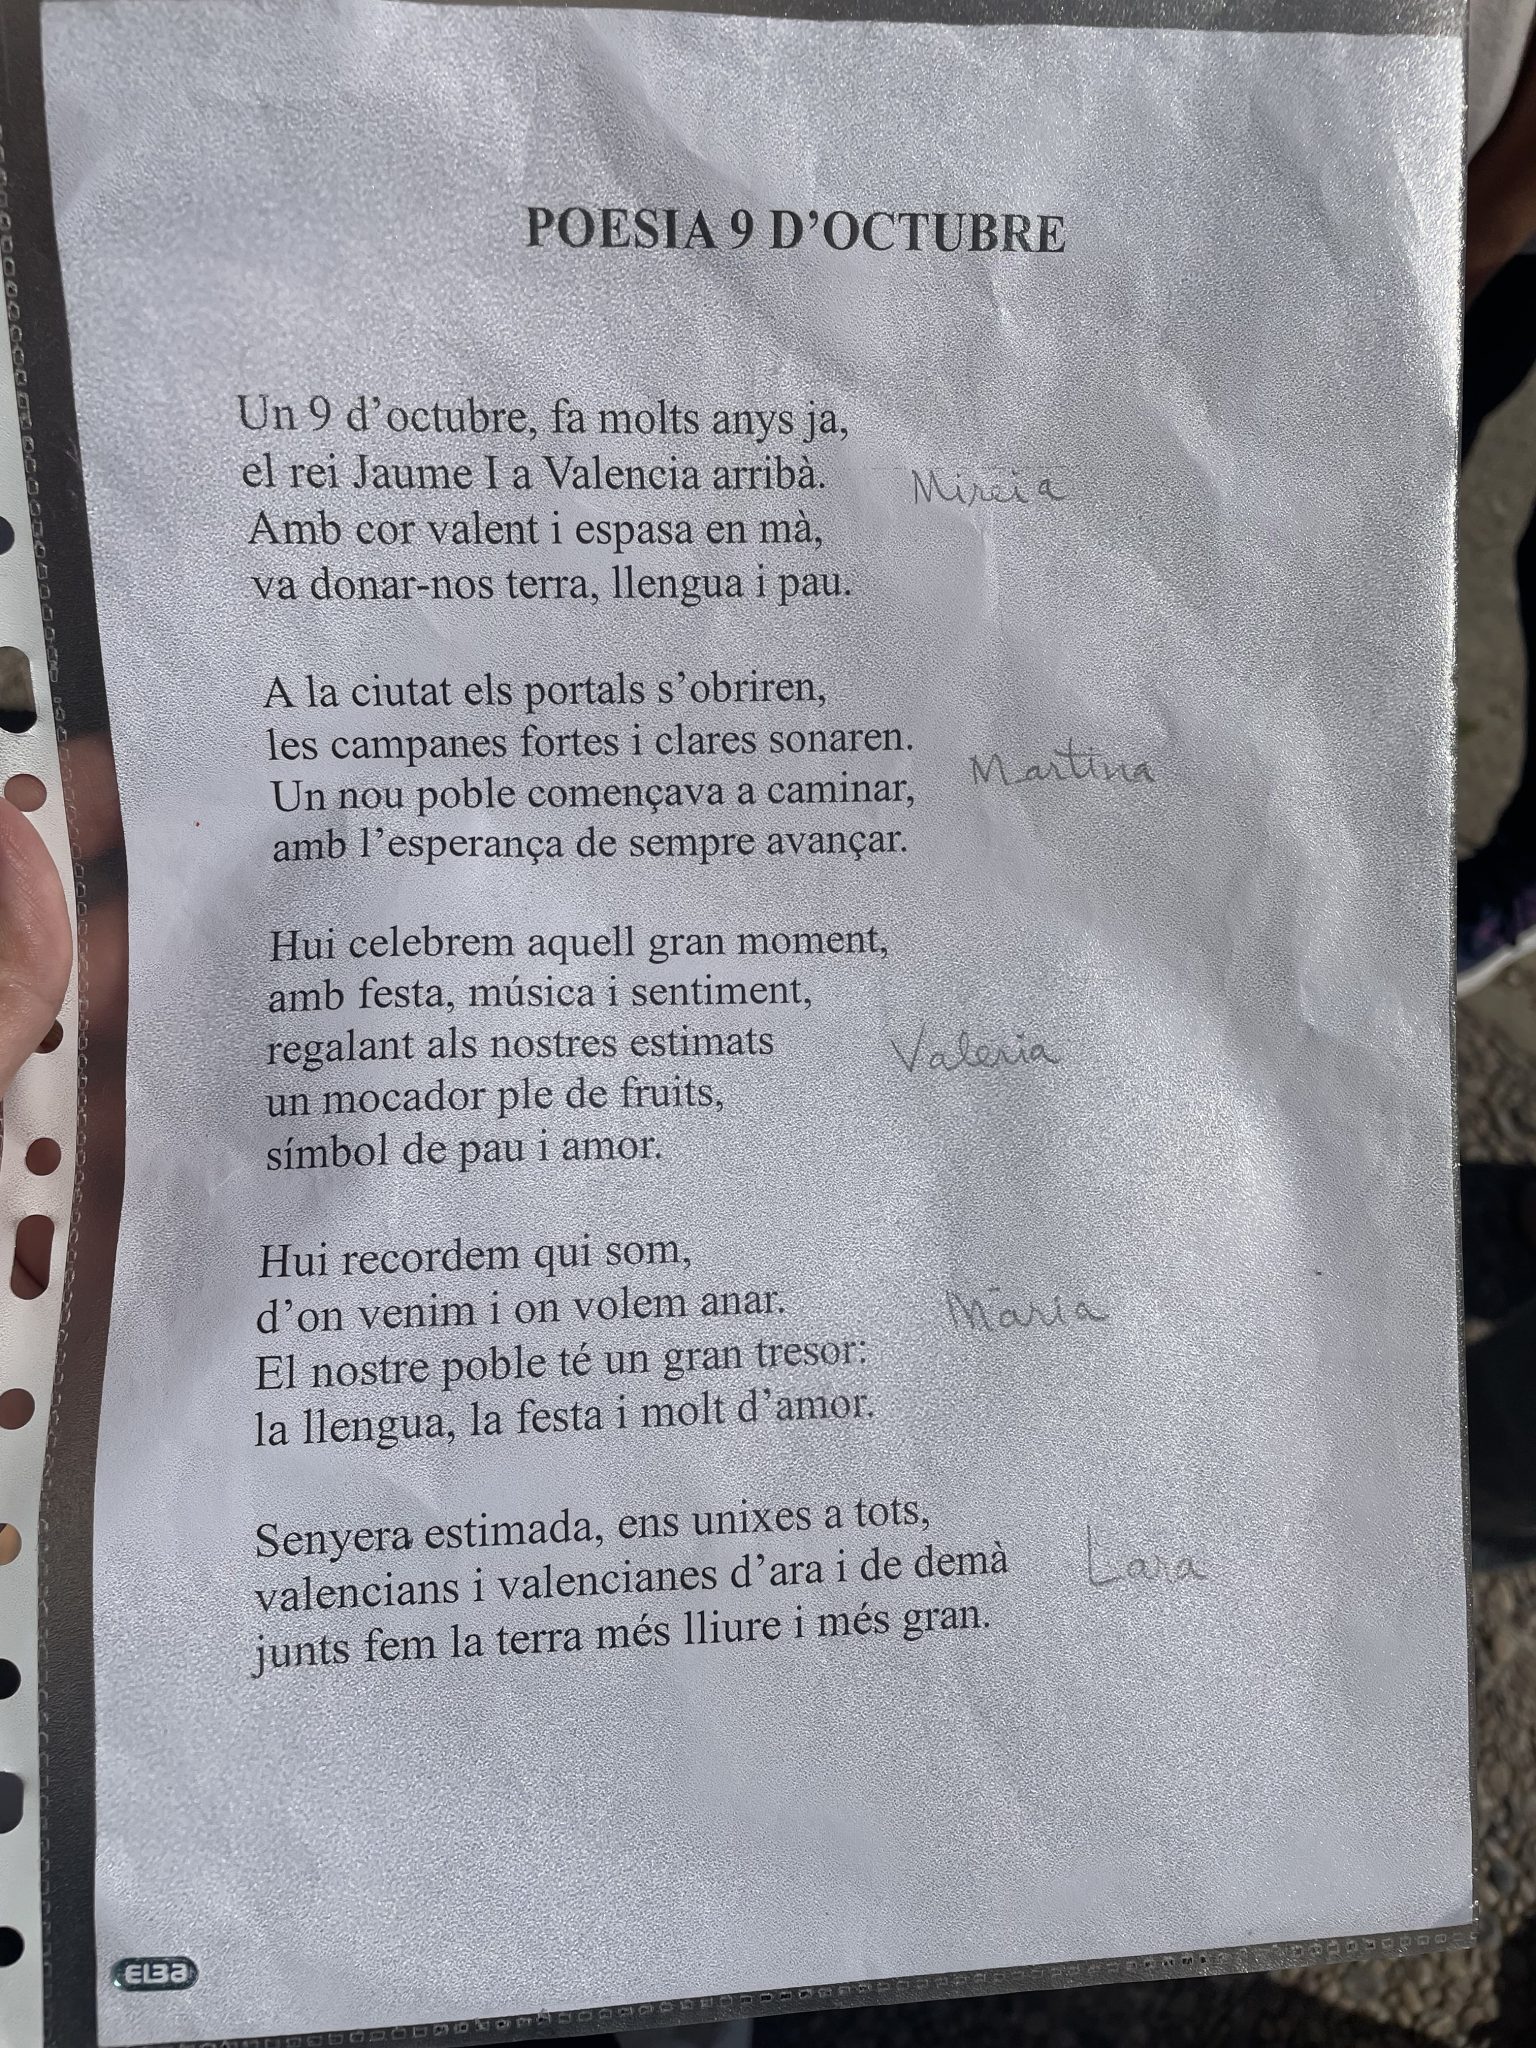 POESIA 9 D’OCTUBRE
Un 9 d’octubre, fa molts anys ja,
el rei Jaume I a Valencia arribà.
Mireia
Amb cor valent i espasa en mà,
va donar-nos terra, llengua i pau.
A la ciutat els portals s’obriren,
les campanes fortes i clares sonaren.
Martina
Un nou poble començava a caminar,
amb l’esperança de sempre avançar.
Hui celebrem aquell gran moment,
amb festa, música i sentiment,
regalant als nostres estimats
Valeria
un mocador ple de fruits,
símbol de pau i amor.
Hui recordem qui som,
d’on venim i on volem anar.
Maria
El nostre poble té un gran tresor:
la llengua, la festa i molt d’amor.
Senyera estimada, ens unixes a tots,
valencians i valencianes d’ara i de demà
Lara
junts fem la terra més lliure i més gran.
ELBA